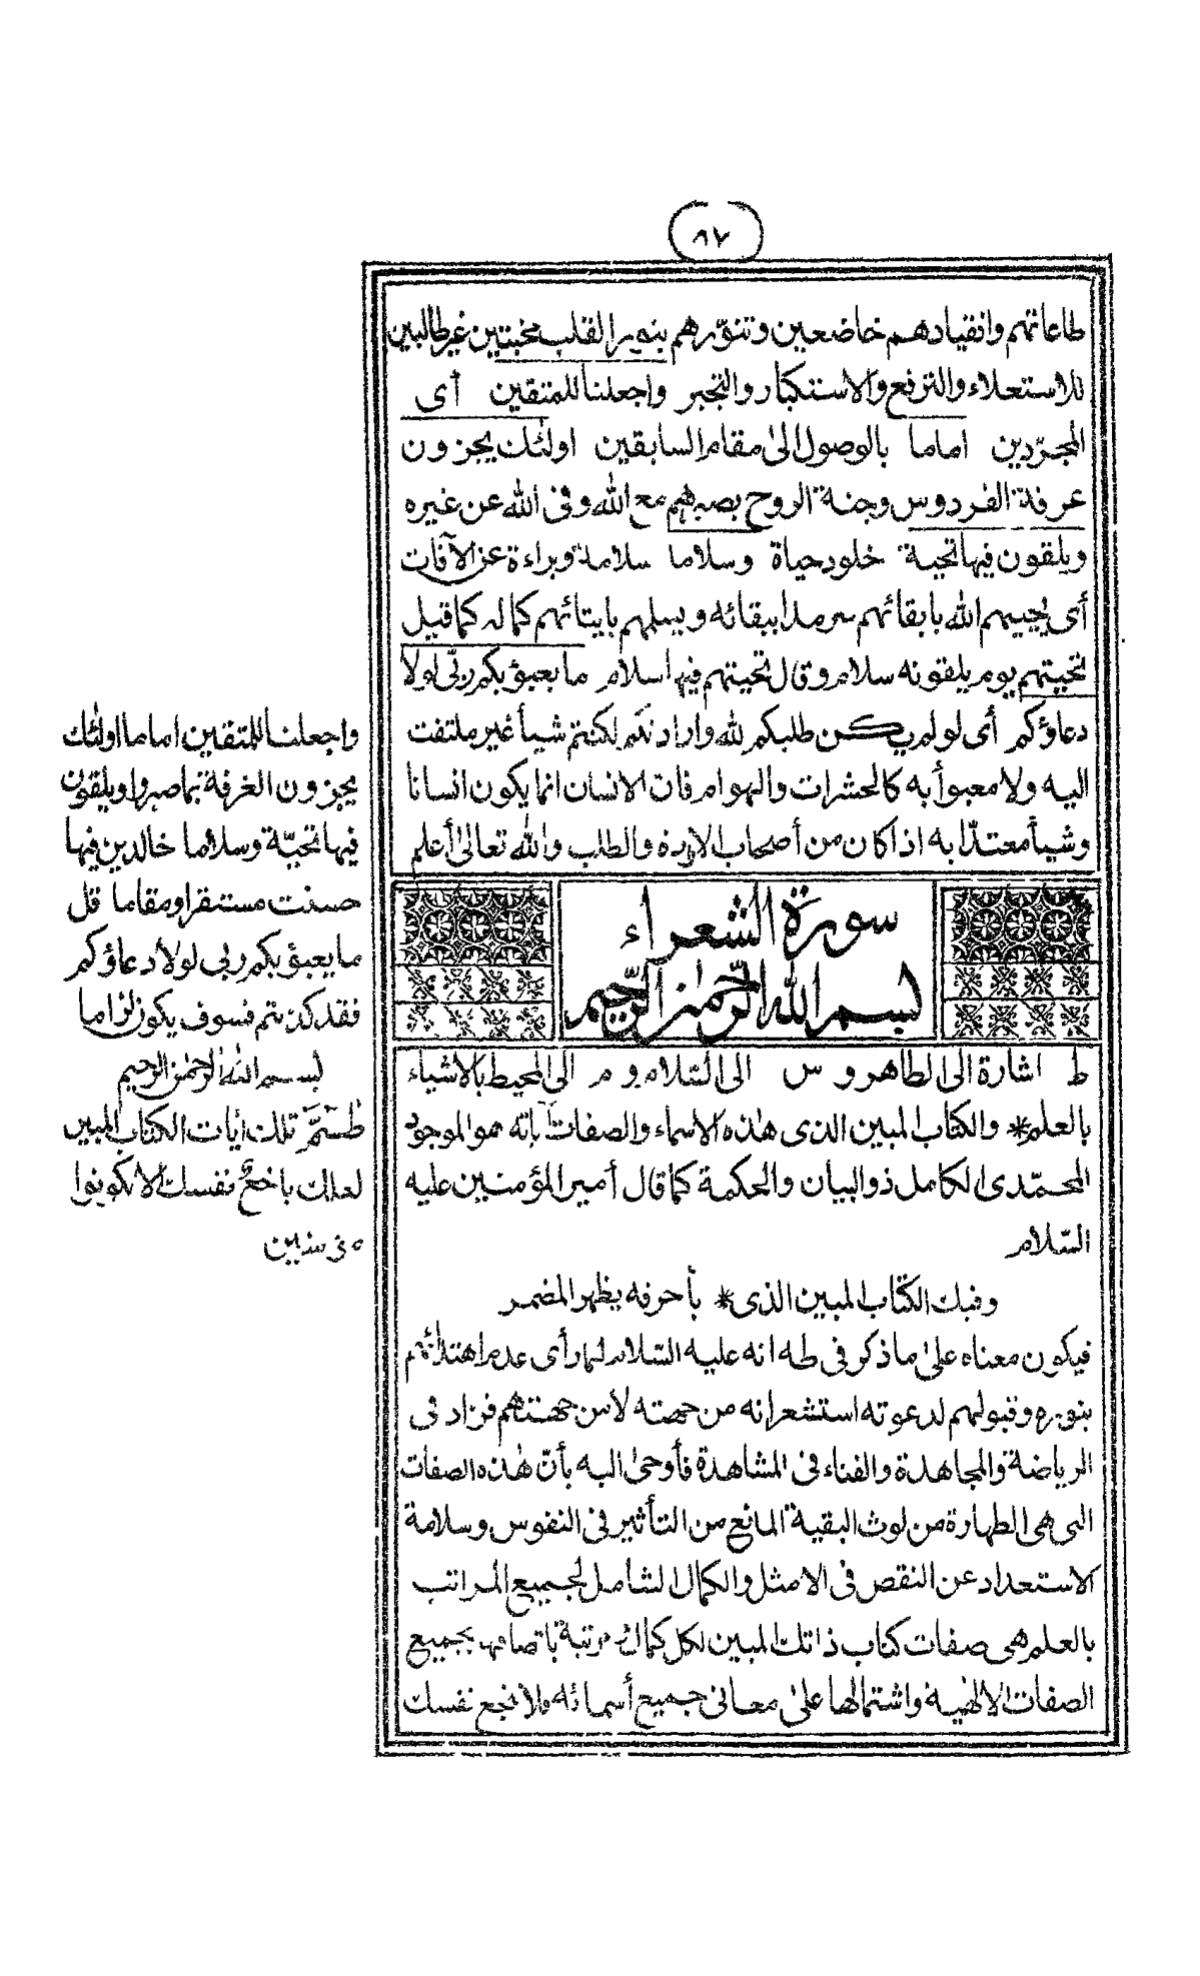 ٨٧
طاعاتهم وانقيادهم خاضعين وتنوّرهم بنور القلب مخبتين غير طالبين
للاستعلاء والترفع والاستكبار والتجبر واجعلنا للمتقين أى
المجرّدين اماما بالوصول الى مقام السابقين اولئك يجزون
غرفة الفردوس وجنة الروح بصبرهم مع الله وفى الله عن غيره
ويلقون فيها تحية خلود حياة وسلاما سلامة وبراءة عن الآفات
أى يحييهم الله بابقائهم سرمدا ببقائه ويسلمهم بايتائهم كماله كما قيل
تحيتهم يوم يلقونه سلام وقال تحيتهم فيها سلام ما يعبؤ بكم ربّى لولا
دعاؤكم أى لو لم يكن طلبكم لله وارادتكم لكنتم شيأ غير ملتفت
اليه ولا معبوأ به كالحشرات والهوام فان الانسان انما يكون انسانا
وشيأ معتدّا به اذا كان من أصحاب الارادة والطلب والله تعالى أعلم
سورة الشعراء
بسم الله الرحمن الرحيم
ط اشارة الى الطاهر و س الى السّلام و م الى المحيط بالاشياء
بالعلم * والكتاب المبين الذى هذه الاسماء والصفات بأنه هو الموجود
المحمّدى الكامل ذو البيان والحكمة كما قال أمير المؤمنين عليه
السّلام
وفيك الكتاب المبين الذى * بأحرفه يظهر المضمر
فيكون معناه على ما ذكر فى طه انه عليه السّلام لما رأى عدم اهتدائهم
بنوره وقبولهم لدعوته استشعر انه من جهته لا من جهتهم فزاد فى
الرياضة والمجاهدة والفناء فى المشاهدة فأوحى اليه بأنّ هذه الصفات
التى هى الطهارة من لوث البقية المانع من التأثير فى النفوس وسلامة
الاستعداد عن النقص فى الامثل والكمال الشامل لجميع المراتب
بالعلم هى صفات كتاب ذاتك المبين لكل كمال مرتبة باتصافها بجميع
الصفات الالهية واشتمالها على معانى جميع أسمائه فلا تبخع نفسك
واجعلنا للمتقين اماما اولئك
يجزون الغرفة بما صبروا ويلقون
فيها تحيّة وسلاما خالدين فيها
حسنت مستقرا ومقاما قل
ما يعبؤ بكم ربى لولا دعاؤكم
فقد كذبتم فسوف يكون لزاما
بسم الله الرحمن الرحيم
طسم تلك ايات الكتاب المبين
لعلك باخع نفسك الا يكونوا
مؤمنين